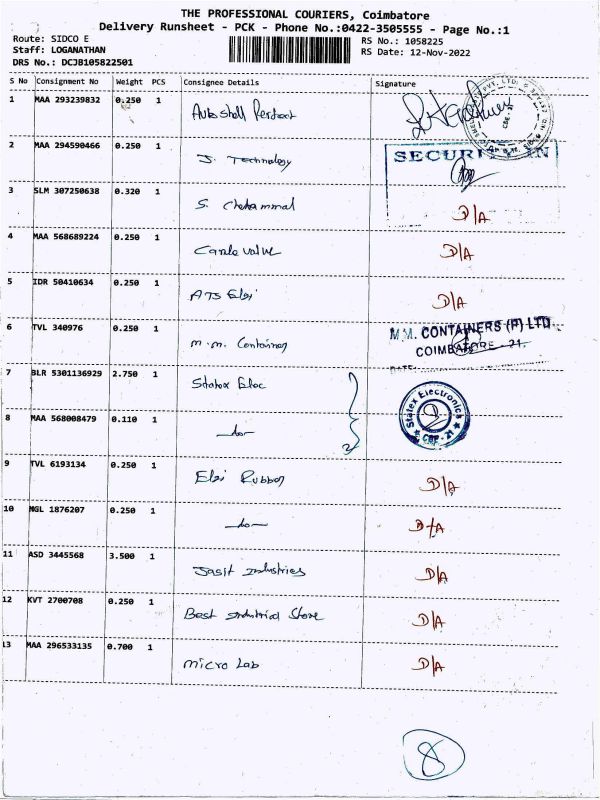 THE PROFESSIONAL COURIERS, Coimbatore
Delivery Runsheet - PCK - Phone No.:0422-3505555 - Page No.:1
Route: SIDCO E
RS No.: 1058225
Staff: LOGANATHAN
RS Date: 12-Nov-2022
DRS No.: DCJB105822501
S No Consignment No Weight PCS Consignee Details Signature
1 MAA 293239832 0.250 1
2 MAA 294590466 0.250 1 J. Technology
SECURI
3 SLM 307250638 0.320 1 S. D/A
4 MAA 568689224 0.250 1 valve D/A
5 IDR 50410634 0.250 1 ATS Elgi D/A
6 TVL 340976 0.250 1 M.M. Container
M.M. CONTAINERS (P) LTD
COIMBATORE - 21.
DATE
7 BLR 5301136929 2.750 1 Statex Elec
Statex Electronics
CBE - 21
8 MAA 568008479 0.110 1 -do-
9 TVL 6193134 0.250 1 Elgi Rubber D/A
10 NGL 1876207 0.250 1 -do- D/A
11 ASD 3445568 3.500 1 Jasit Industries D/A
12 KVT 2700708 0.250 1 Best Industrial Store D/A
13 MAA 296533135 0.700 1 Micro Lab D/A
8